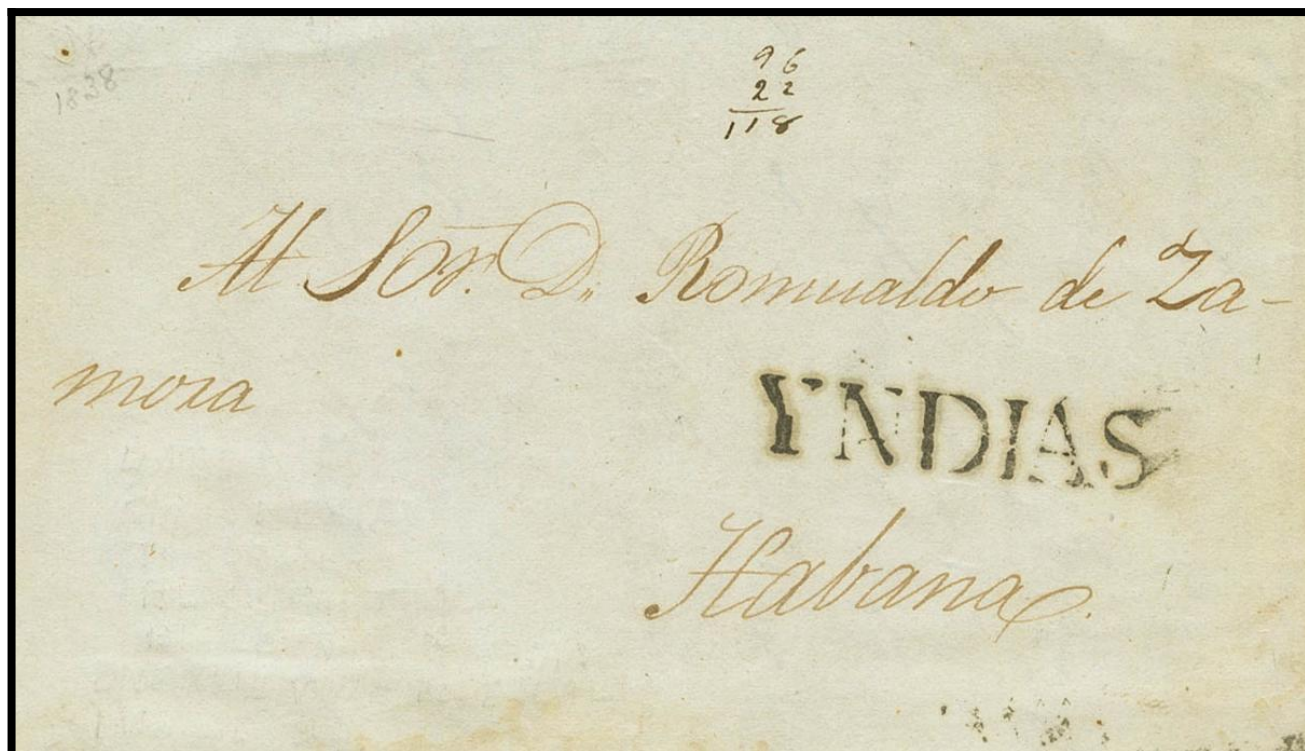 1838
96
22
118
Al Sor. D. Romualdo de Za-
mora
YNDIAS
Habana.